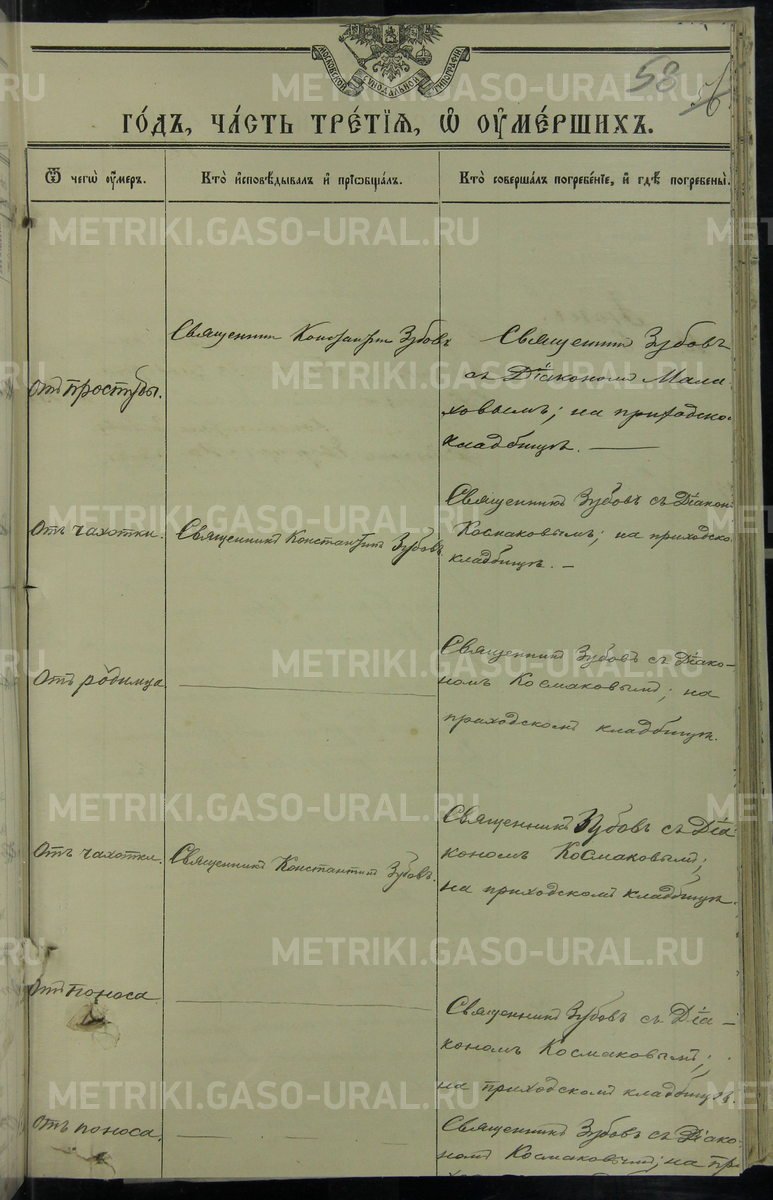 МОСКОВСКОЙ СѴНОДАЛЬНОЙ ТИПОГРАФІИ
58
56
ГО́ДЪ, ЧА́СТЬ ТРЕ́ТІЯ, Ѡ ОУМЕ́РШИХЪ.
Ѿ чегѡ̀ оу́меръ.
Кто̀ и҆сповѣ́дывалъ и҆ прїѡбща́лъ.
Кто̀ соверша́лъ погребе́нїе, и҆ гдѣ̀ погребены̀.
Отъ простуды.
Священникъ Константинъ Зубовъ
Священникъ Зубовъ
съ Діакономъ Мала
ховымъ; на приходско
кладбищѣ. —
Отъ чахотки.
Священникъ Константинъ Зубовъ
Священникъ Зубовъ съ Діакон
Космаковымъ; на приходско
кладбищѣ. —
Отъ родимца
Священникъ Зубовъ съ Діако-
номъ Космаковымъ; на
приходскомъ кладбищѣ.
Отъ чахотки.
Священникъ Константинъ Зубовъ.
Священникъ Зубовъ съ Діа
кономъ Космаковымъ;
на приходскомъ кладбищѣ.
Отъ поноса
Священникъ Зубовъ съ Діа-
кономъ Космаковымъ;
на приходскомъ кладбищѣ.
Отъ поноса.
Священникъ Зубовъ съ Діако
номъ Космаковымъ; на при
METRIKI.GASO-URAL.RU